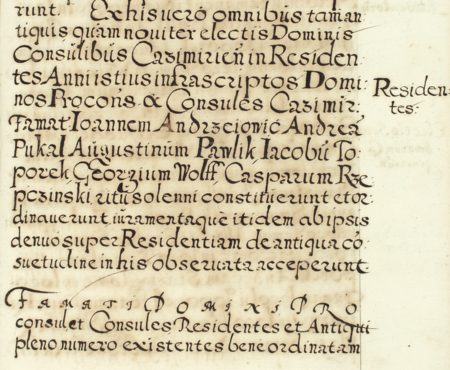 runt. Ex his vero omnibus tam an
tiquis quam noviter electis Dominis
Consulibus Casimirien̄ in Residen
tes Anni istius infrascriptos Domi:
nos Procons̄ & Consules Casimir:
Famat Ioannem Andrzeiowic̄ Andreā
Pukal Augustinum Pawlik Iacobū To:
porek Georgium Wolff Casparum Rze
pczinski ritū solenni constituerunt et or:
dinaverunt iuramentaque itidem ab ipsis
denuo super Residentiam de antiqua cō:
suetudine in his observata acceperunt.
Residen:
tes.
FAMATI DOMINI PRO
consul et Consules Residentes et Antiqui
pleno numero existentes bene ordinatam